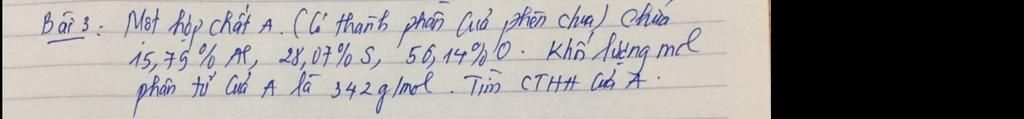 Bài 3: Một hợp chất A. (Có thành phần của phèn chua) chứa
15,79% Al, 28,07% S, 56,14% O. Khối lượng mol
phân tử của A là 342 g/mol. Tìm CTHH của A.